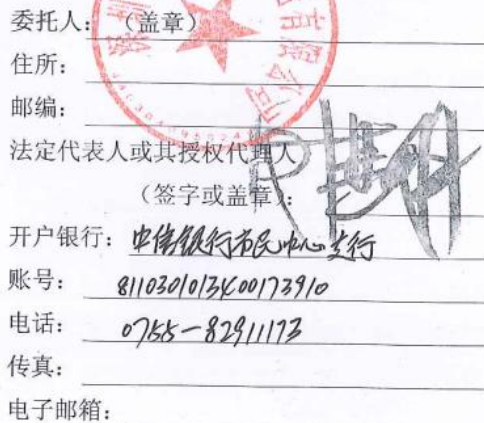 委托人：（盖章）
住所：
邮编：
法定代表人或其授权代理人
（签字或盖章）：
开户银行：中信银行市民中心支行
账号：8110301013400173910
电话：0755-82911173
传真：
电子邮箱：